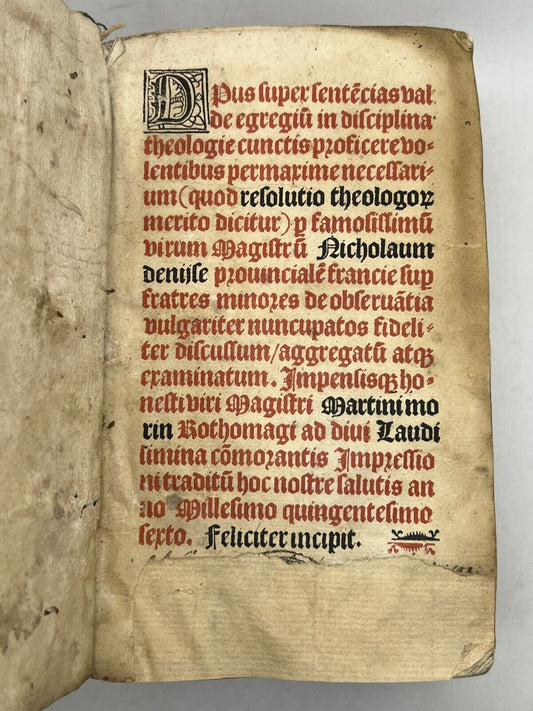 Opus super sentēcias val
de egregiū in disciplina
theologie cunctis proficere vo⸗
lentibus permaxime necessari⸗
um (quod resolutio theologoꝝ
merito dicitur) ꝑ famosissimū
virum Magistrū Nicholaum
denijse prouincialē francie sup
fratres minores de obseruātia
vulgariter nuncupatos fideli⸗
ter discussum/aggregatū atqꝫ
examinatum. Impensisqꝫ ho⸗
nesti viri Magistri Martini mo
rin Rothomagi ad diui Laudi
limina cōmorantis Impressio
ni traditū hoc nostre salutis an
no Millesimo quingentesimo
sexto. Feliciter incipit.